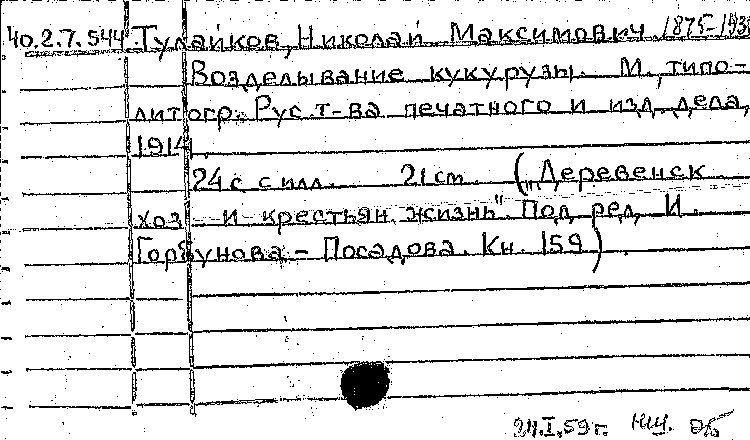 40.2.7.544 Тулайков, Николай Максимович. 1875-193
Возделывание кукурузы. М., типо-
литогр. Рус. т-ва печатного и изд. дела,
1914.
24 с с илл. 21 cm. („Деревенск
хоз и крестьян. жизнь" Под ред. И.
Горбунова-Посадова. Кн. 159)
24.I.59 г.